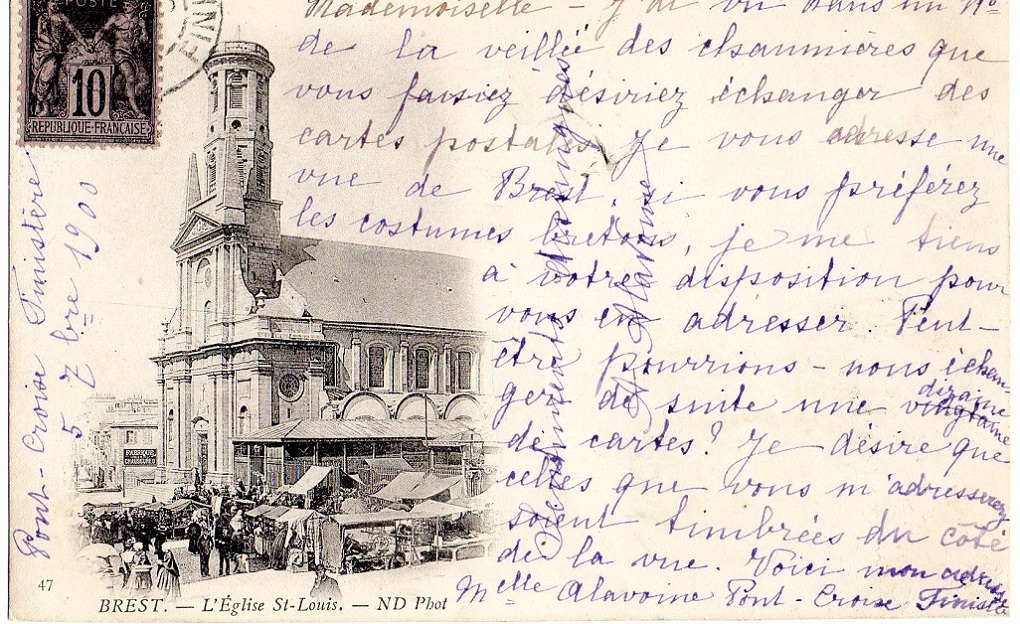 POSTE
10
REPUBLIQUE FRANÇAISE
Pont-Croise Finistère
5 7bre 1900
Mademoiselle - J'ai vu dans un No
de la veillée des chaumières que
vous faisiez désiriez échanger des
cartes postales. Je vous adresse une
vue de Brest, si vous préférez
les costumes bretons, je me tiens
à votre disposition pour
vous en adresser. Peut-
être pourrions-nous échan
ger de suite une vingtaine
dizaine
de cartes? Je désire que
celles que vous m'adresserez
soient timbrées du côté
de la vue. Voici mon adresse
Melle Alavoine Pont-Croise Finistère
FABRIQUE
CHAUSSURES
47
BREST. — L'Église St-Louis. — ND Phot